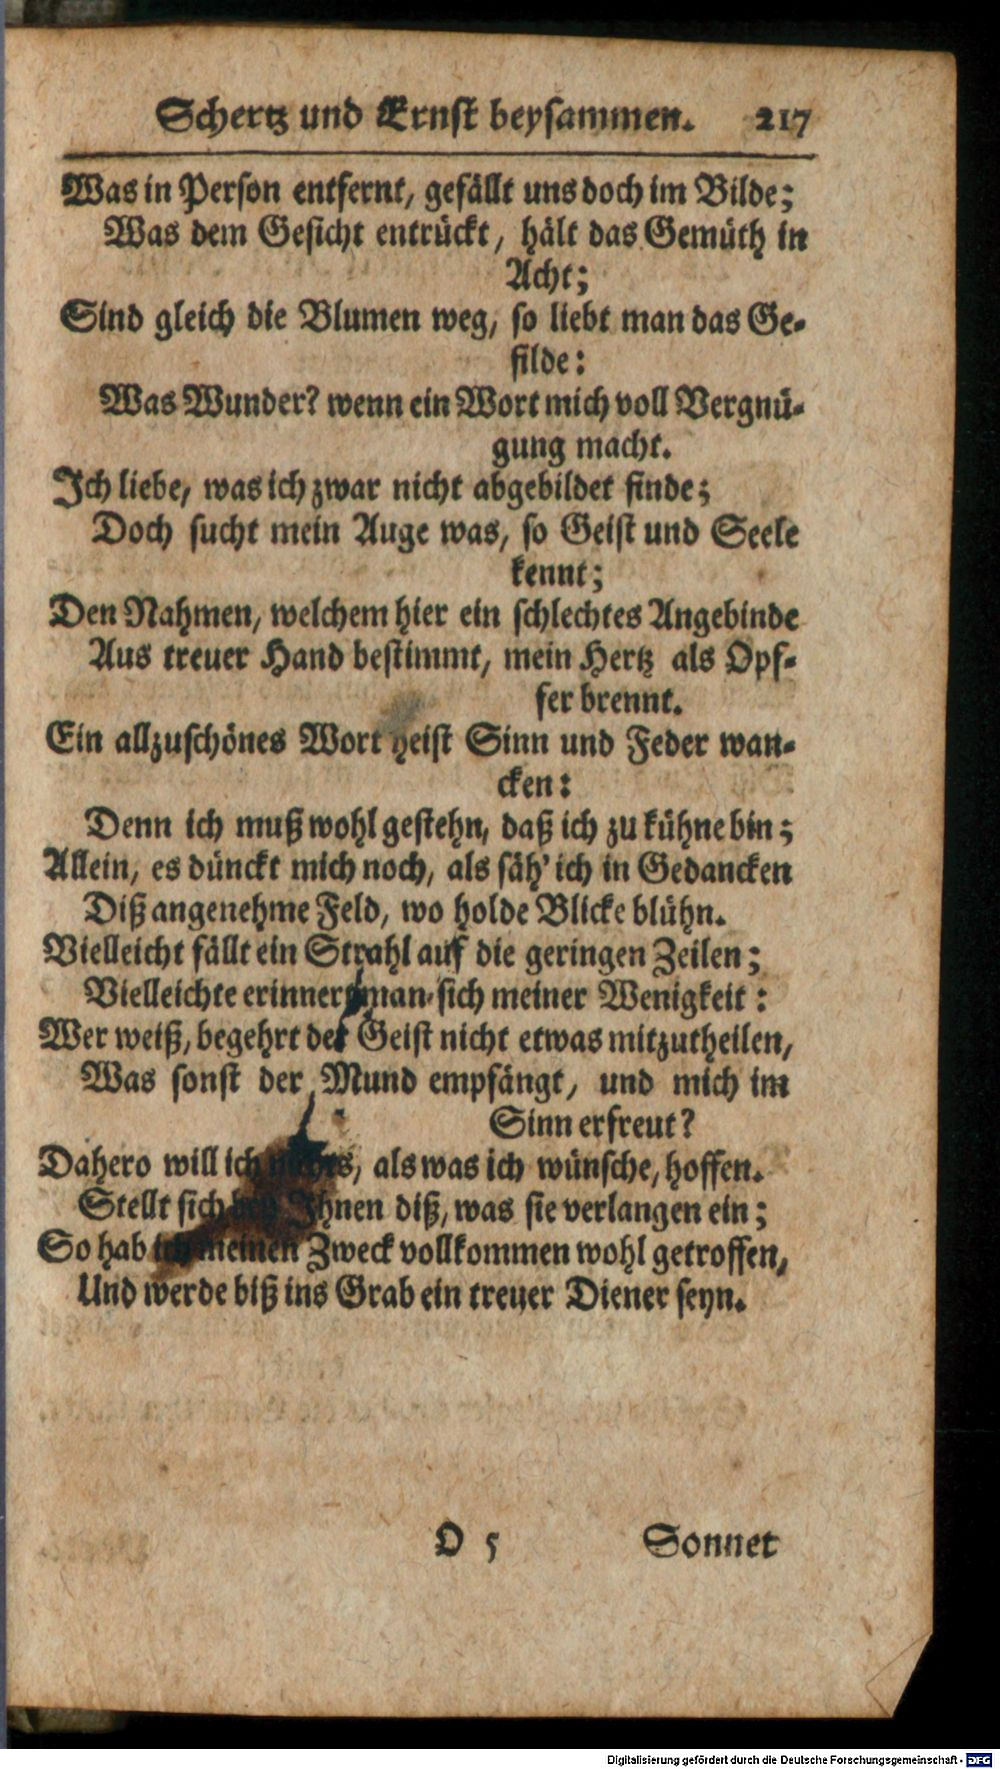 Schertz und Ernst beysammen. 217
Was in Person entfernt, gefällt uns doch im Bilde;
Was dem Gesicht entrückt, hält das Gemüth in
Acht;
Sind gleich die Blumen weg, so liebt man das Ge-
filde:
Was Wunder? wenn ein Wort mich voll Vergnü-
gung macht.
Ich liebe, was ich zwar nicht abgebildet finde;
Doch sucht mein Auge was, so Geist und Seele
kennt;
Den Nahmen, welchem hier ein schlechtes Angebinde
Aus treuer Hand bestimmt, mein Hertz als Opf-
fer brennt.
Ein allzuschönes Wort heist Sinn und Feder wan-
cken:
Denn ich muß wohl gestehn, daß ich zu kühne bin;
Allein, es dünckt mich noch, als säh' ich in Gedancken
Diß angenehme Feld, wo holde Blicke blühn.
Vielleicht fällt ein Strahl auf die geringen Zeilen;
Vielleichte erinnert man sich meiner Wenigkeit:
Wer weiß, begehrt der Geist nicht etwas mitzutheilen,
Was sonst der Mund empfängt, und mich im
Sinn erfreut?
Dahero will ich nichts, als was ich wünsche, hoffen.
Stellt sich bey Ihnen diß, was sie verlangen ein;
So hab ich meinen Zweck vollkommen wohl getroffen,
Und werde biß ins Grab ein treuer Diener seyn.
O 5 Sonnet
Digitalisierung gefördert durch die Deutsche Forschungsgemeinschaft - DFG